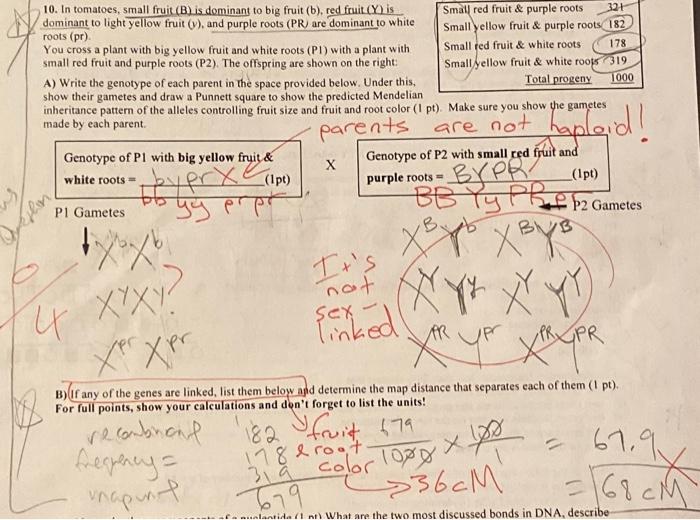 10. In tomatoes, small fruit (B) is dominant to big fruit (b), red fruit (Y) is
dominant to light yellow fruit (y), and purple roots (PR) are dominant to white
roots (pr).
You cross a plant with big yellow fruit and white roots (P1) with a plant with
small red fruit and purple roots (P2). The offspring are shown on the right:
Small red fruit & purple roots 321
Small yellow fruit & purple roots 182
Small red fruit & white roots 178
Small yellow fruit & white roots 319
Total progeny 1000
A) Write the genotype of each parent in the space provided below. Under this,
show their gametes and draw a Punnett square to show the predicted Mendelian
inheritance pattern of the alleles controlling fruit size and fruit and root color (1 pt). Make sure you show the gametes
made by each parent.
parents are not haploid!
Genotype of P1 with big yellow fruit &
white roots = byprX (1pt)
bb yy prpr
X
Genotype of P2 with small red fruit and
purple roots = BYPR (1pt)
BB Yy PR pr
P1 Gametes
P2 Gametes
X^b X^b
X^y X^y ?
X^pr X^pr
0/4
It's
not
sex-
linked
X^B Y^b X^B Y^B
X^Y Y^y X^Y Y^Y
X^PR Y^pr X^PR Y^PR
B) If any of the genes are linked, list them below and determine the map distance that separates each of them (1 pt).
For full points, show your calculations and don't forget to list the units!
recombinant
frequency =
mapunit
182
178
319
679
fruit
& root
color
679/1000 × 100/1 = 67.9
36cM
= 68 cM
(1 pt) What are the two most discussed bonds in DNA, describe